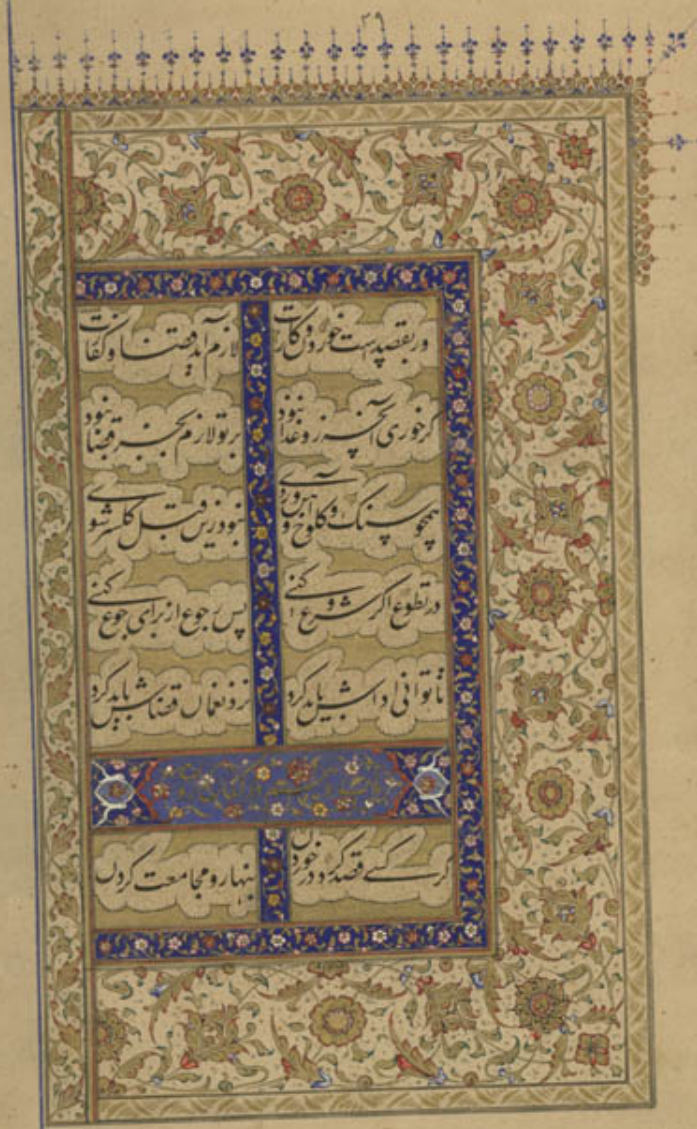 ۳۹
ور بقصدست خوردن و کارت لازم آید قضا و کفارت
کر خوری آنچه زو غذا نبود بر تو لازم بجز قضا نبود
همچو سنک و کلوخ و آهن و روی نبود زین قبل کلسرشوی
در تطوع اکر شروع کنی پس رجوع از برای جوع کنی
تا توانی اداش باید کرد نزد نعمان قضاش باید کرد
کر کسی قصد کرد در خوردن بنهار و مجامعت کردن